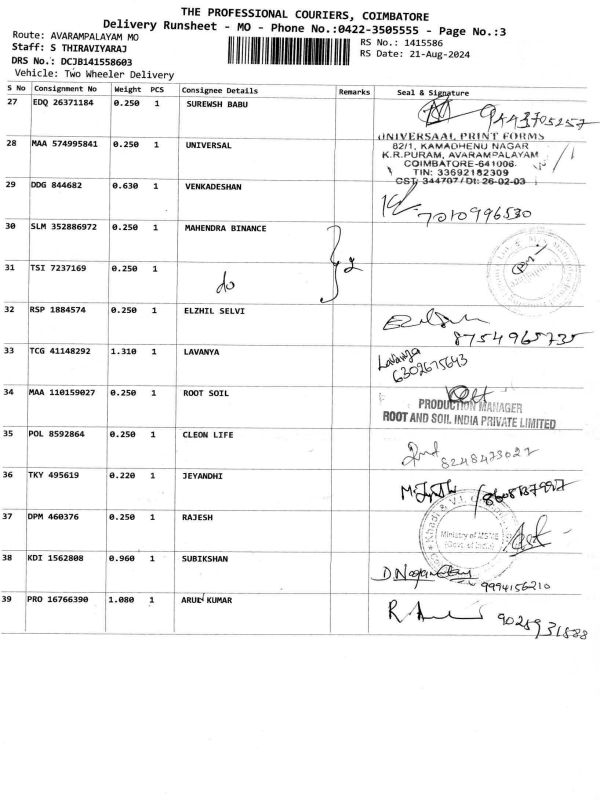 THE PROFESSIONAL COURIERS, COIMBATORE
Delivery Runsheet - MO - Phone No.:0422-3505555 - Page No.:3
Route: AVARAMPALAYAM MO
RS No.: 1415586
Staff: S THIRAVIYARAJ
RS Date: 21-Aug-2024
DRS No.: DCJB141558603
Vehicle: Two Wheeler Delivery
S No Consignment No Weight PCS Consignee Details Remarks Seal & Signature
27 EDQ 26371184 0.250 1 SUREWSH BABU 9443705257
28 MAA 574995841 0.250 1 UNIVERSAL
UNIVERSAAL PRINT FORMS
82/1, KAMADHENU NAGAR
K.R.PURAM, AVARAMPALAYAM
COIMBATORE-641006.
TIN: 33692182309
CST: 344707/Dt: 26-02-03
29 DDG 844682 0.630 1 VENKADESHAN 7010996530
30 SLM 352886972 0.250 1 MAHENDRA BINANCE
31 TSI 7237169 0.250 1 do 2
32 RSP 1884574 0.250 1 ELZHIL SELVI 8754965735
33 TCG 41148292 1.310 1 LAVANYA Lavanya
6302675643
34 MAA 110159027 0.250 1 ROOT SOIL
PRODUCTION MANAGER
ROOT AND SOIL INDIA PRIVATE LIMITED
35 POL 8592864 0.250 1 CLEON LIFE 8248473027
36 TKY 495619 0.220 1 JEYANDHI
37 DPM 460376 0.250 1 RAJESH
Ministry of MSME
(Govt. of India)
38 KDI 1562808 0.960 1 SUBIKSHAN 9994156210
39 PRO 16766390 1.080 1 ARUL KUMAR 9025931588